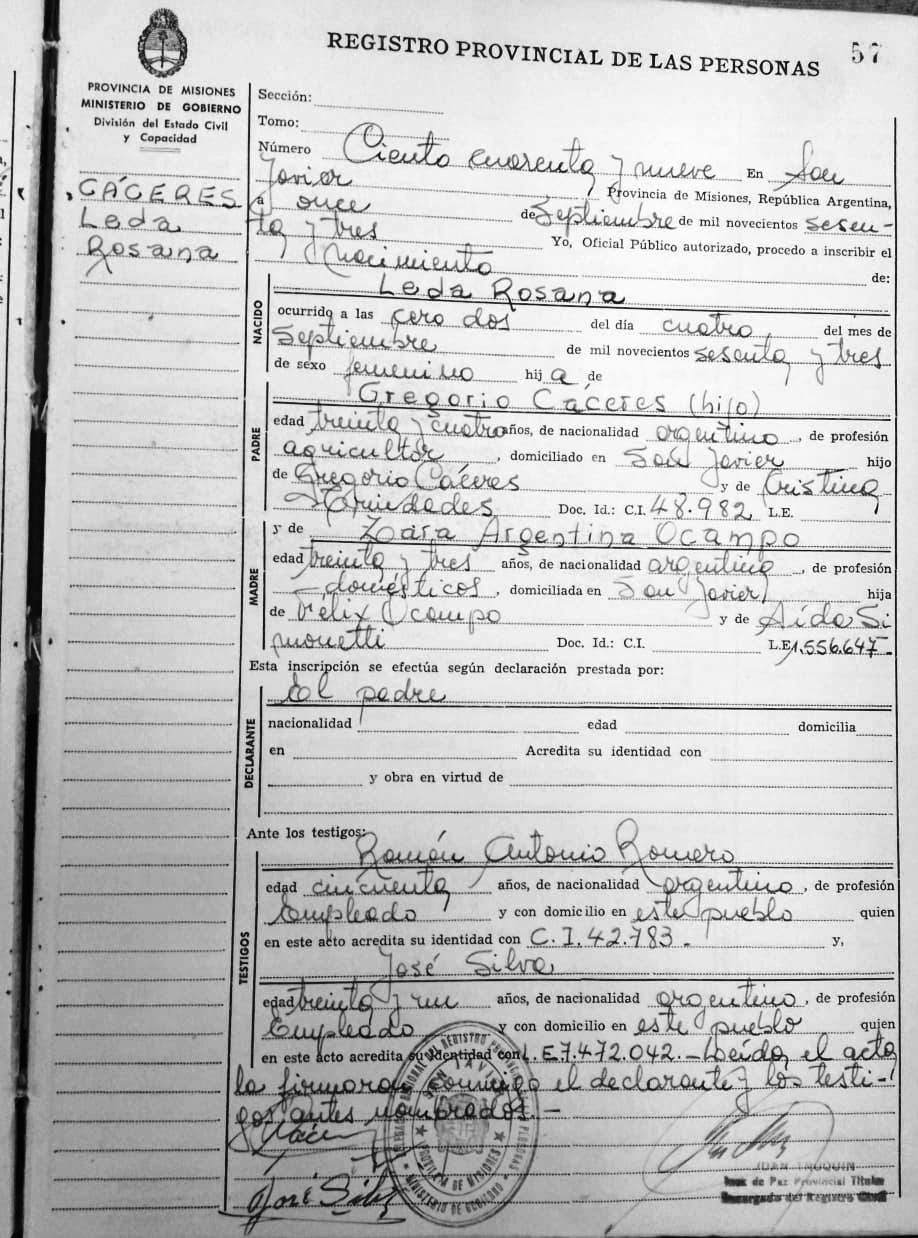 REGISTRO PROVINCIAL DE LAS PERSONAS 57
PROVINCIA DE MISIONES
MINISTERIO DE GOBIERNO
División del Estado Civil
y Capacidad
CÁCERES
Leda
Rosana
Sección:
Tomo:
Número Ciento cuarenta y nueve En San
Javier Provincia de Misiones, República Argentina,
a once de Septiembre de mil novecientos sesen-
ta y tres Yo, Oficial Público autorizado, procedo a inscribir el
Nacimiento de:
Leda Rosana
NACIDO
ocurrido a las cero dos del día cuatro del mes de
Septiembre de mil novecientos sesenta y tres
de sexo femenino hij a de
Gregorio Cáceres (hijo)
PADRE
edad treinta y cuatro años, de nacionalidad argentino, de profesión
agricultor, domiciliado en San Javier hijo
de Gregorio Cáceres y de Cristina
Doc. Id.: C.I. 48.982 L.E.
y de Zaira Argentina Ocampo
MADRE
edad treinta y tres años, de nacionalidad argentina, de profesión
domésticos, domiciliada en San Javier hija
de Félix Ocampo y de Aída Si
monetti Doc. Id.: C.I. L.E 1.556.647.-
Esta inscripción se efectúa según declaración prestada por:
El padre
DECLARANTE
nacionalidad edad domicilia
en Acredita su identidad con
y obra en virtud de
Ante los testigos:
Ramón Antonio Romero
TESTIGOS
edad cincuenta años, de nacionalidad argentino, de profesión
Empleado y con domicilio en este pueblo quien
en este acto acredita su identidad con C.I. 42.783.- y,
José Silva
edad treinta y un años, de nacionalidad argentino, de profesión
Empleado y con domicilio en este pueblo quien
en este acto acredita su identidad con L.E 7.472.042.- Leída el acta
la firmaron conmigo el declarante y los testi-
gos antes nombrados.-
José Silva
SAN JAVIER
PROVINCIA DE MISIONES
MINISTERIO DE GOBIERNO
Juez de Paz Provincial Titular
Encargado del Registro Civil